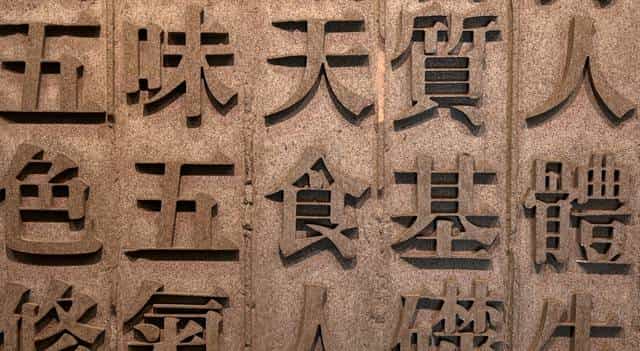 人體生
質基礎
天食人
味五氣
五色修